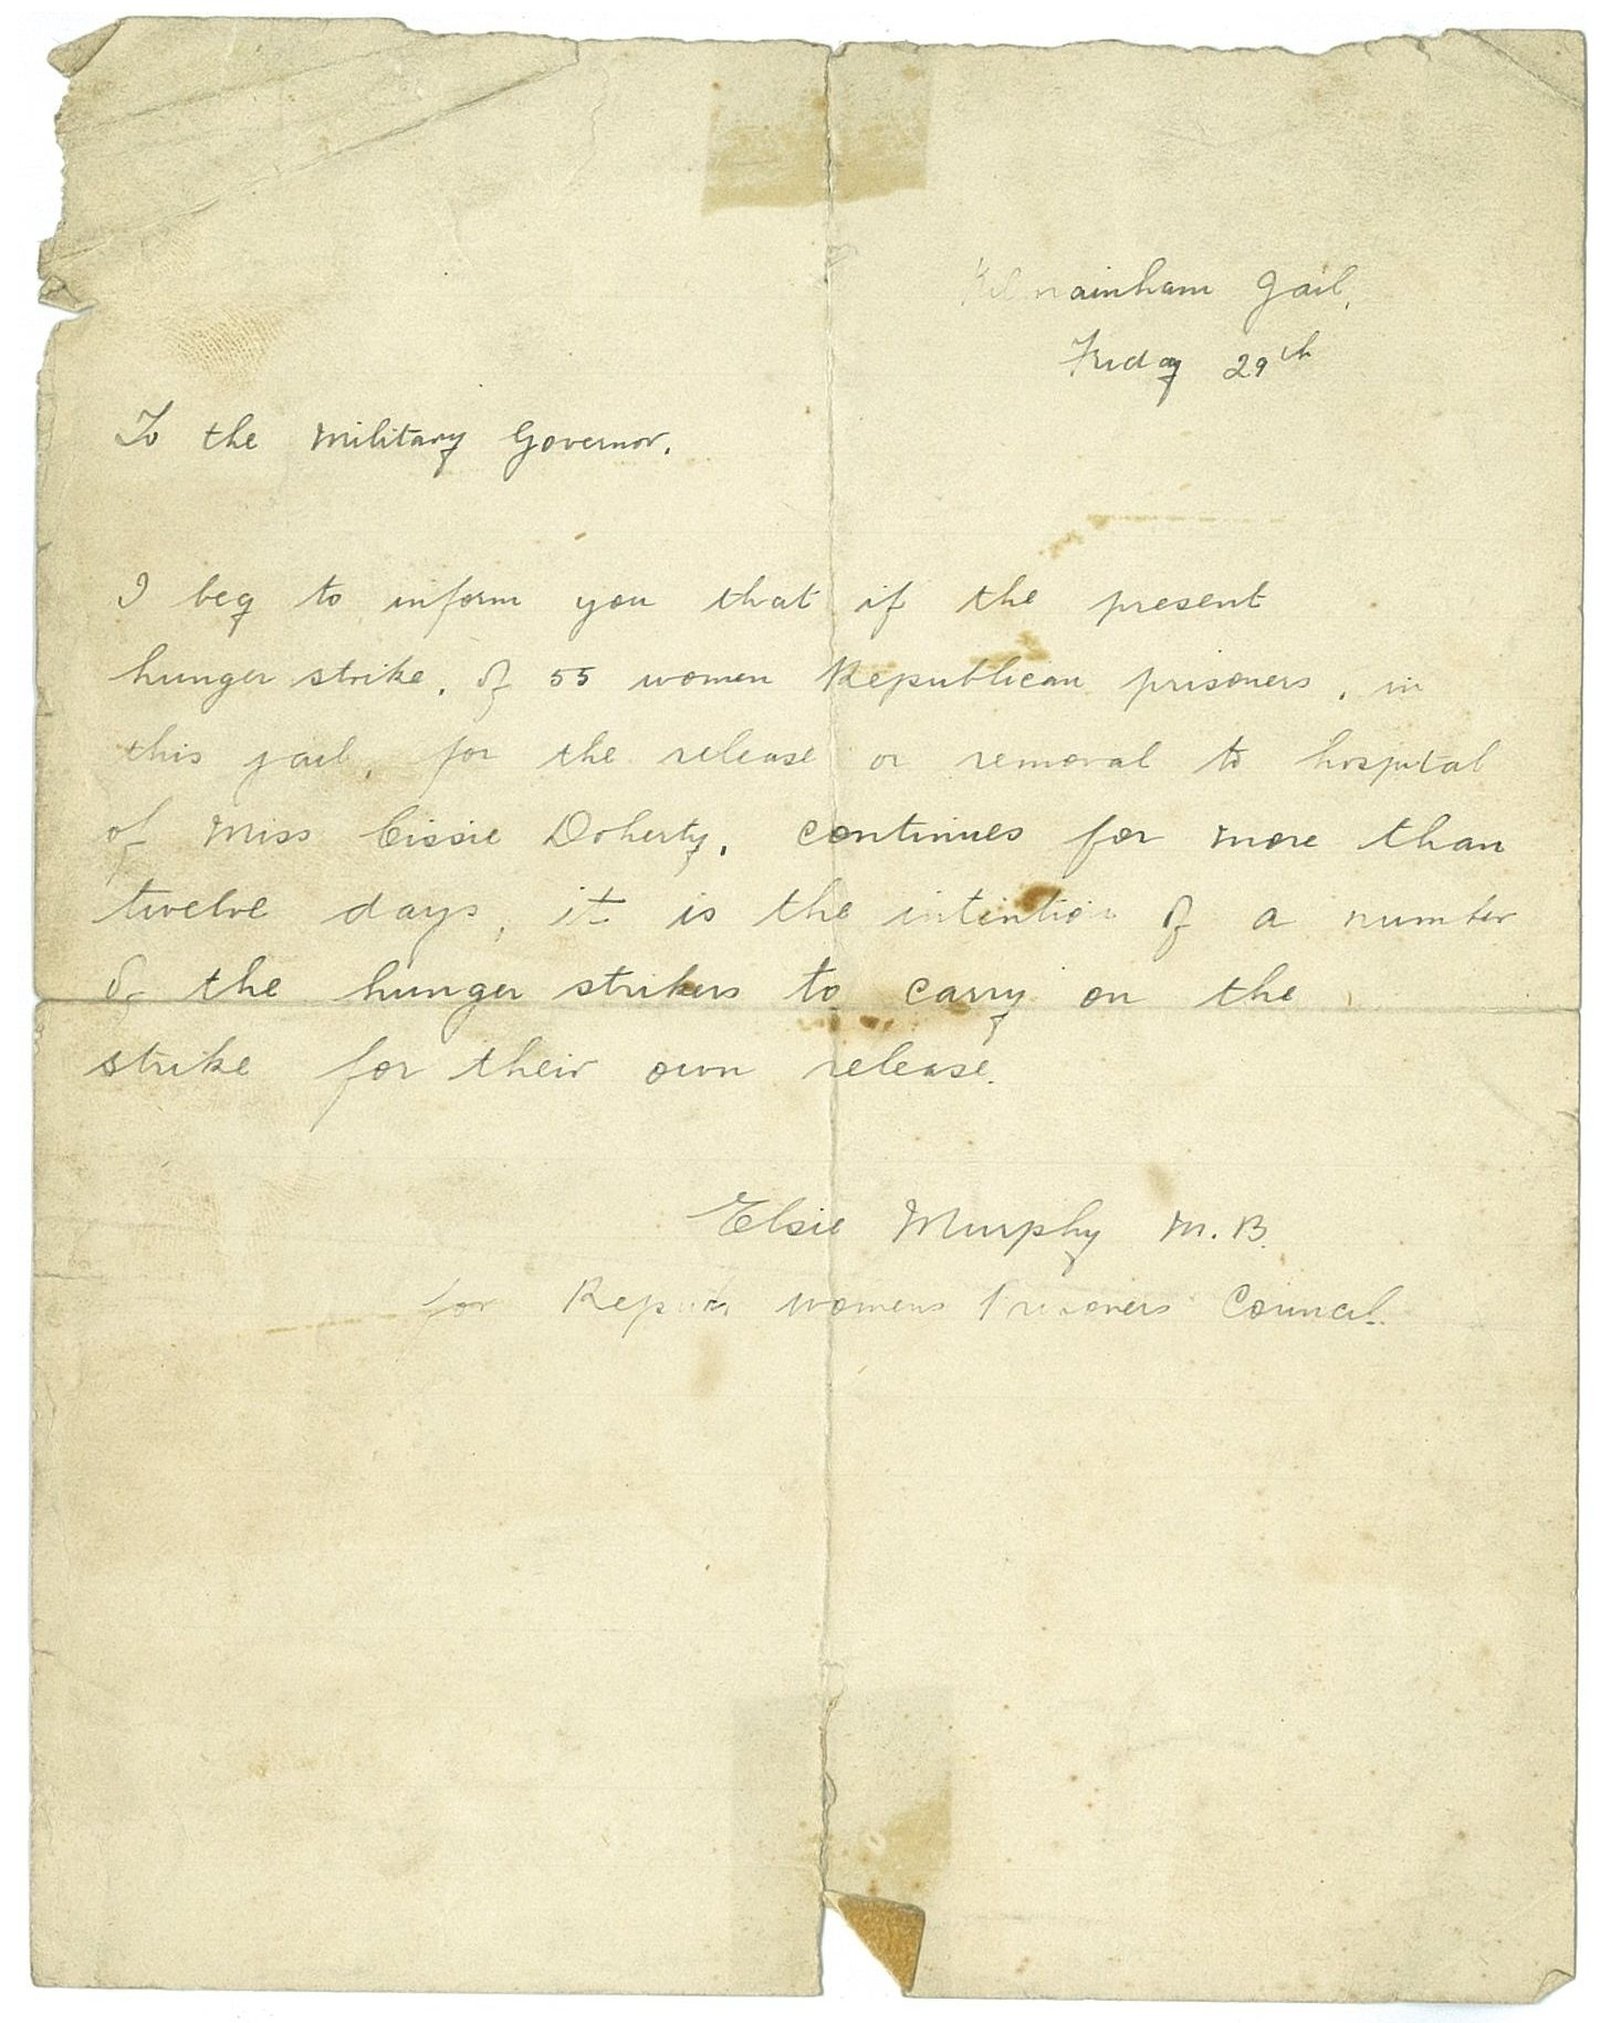 Kilmainham Jail,
Friday 29th
To the Military Governor.
I beg to inform you that if the present
hunger strike, of 55 women Republican prisoners, in
this jail, for the release or removal to hospital
of Miss Cissie Doherty, continues for more than
twelve days, it is the intention of a number
of the hunger strikers to carry on the
strike for their own release.
Elsie Murphy M.B.
for womens Prisoners Council.